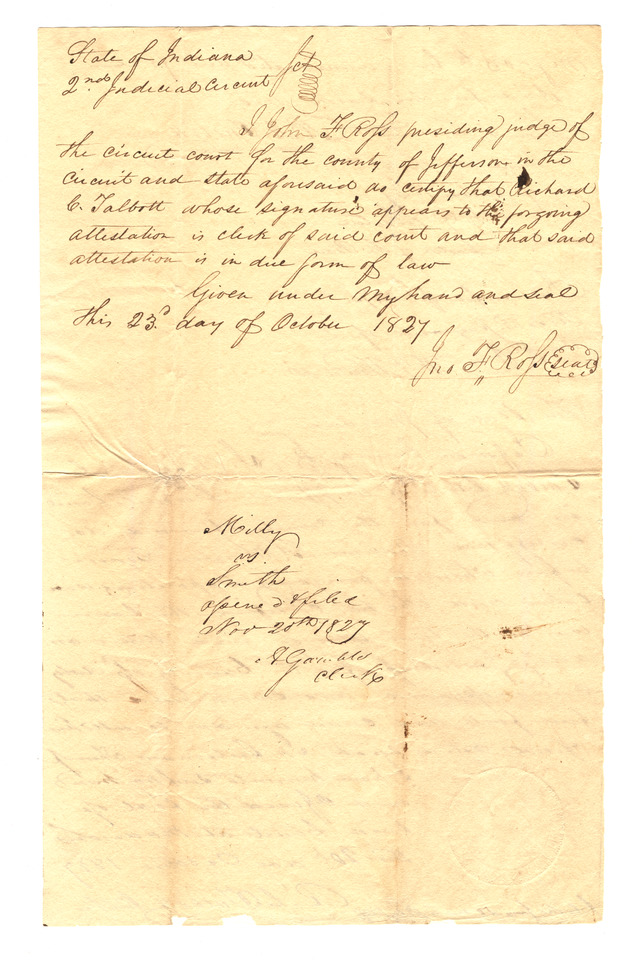 State of Indiana
2nd Judicial Circuit Sct
I John F Ross presiding judge of
the circuit court for the county of Jefferson in the
circuit and state aforesaid do certify that Richard
C. Talbott whose signature appears to the forgoing
attestation is clerk of said court and that said
attestation is in due form of law
Given under my hand and seal
this 23d day of October 1827
Jno F Ross seal
Milly
vs
Smith
opened & filed
Nov 20th 1827
A Gamble
Clerk